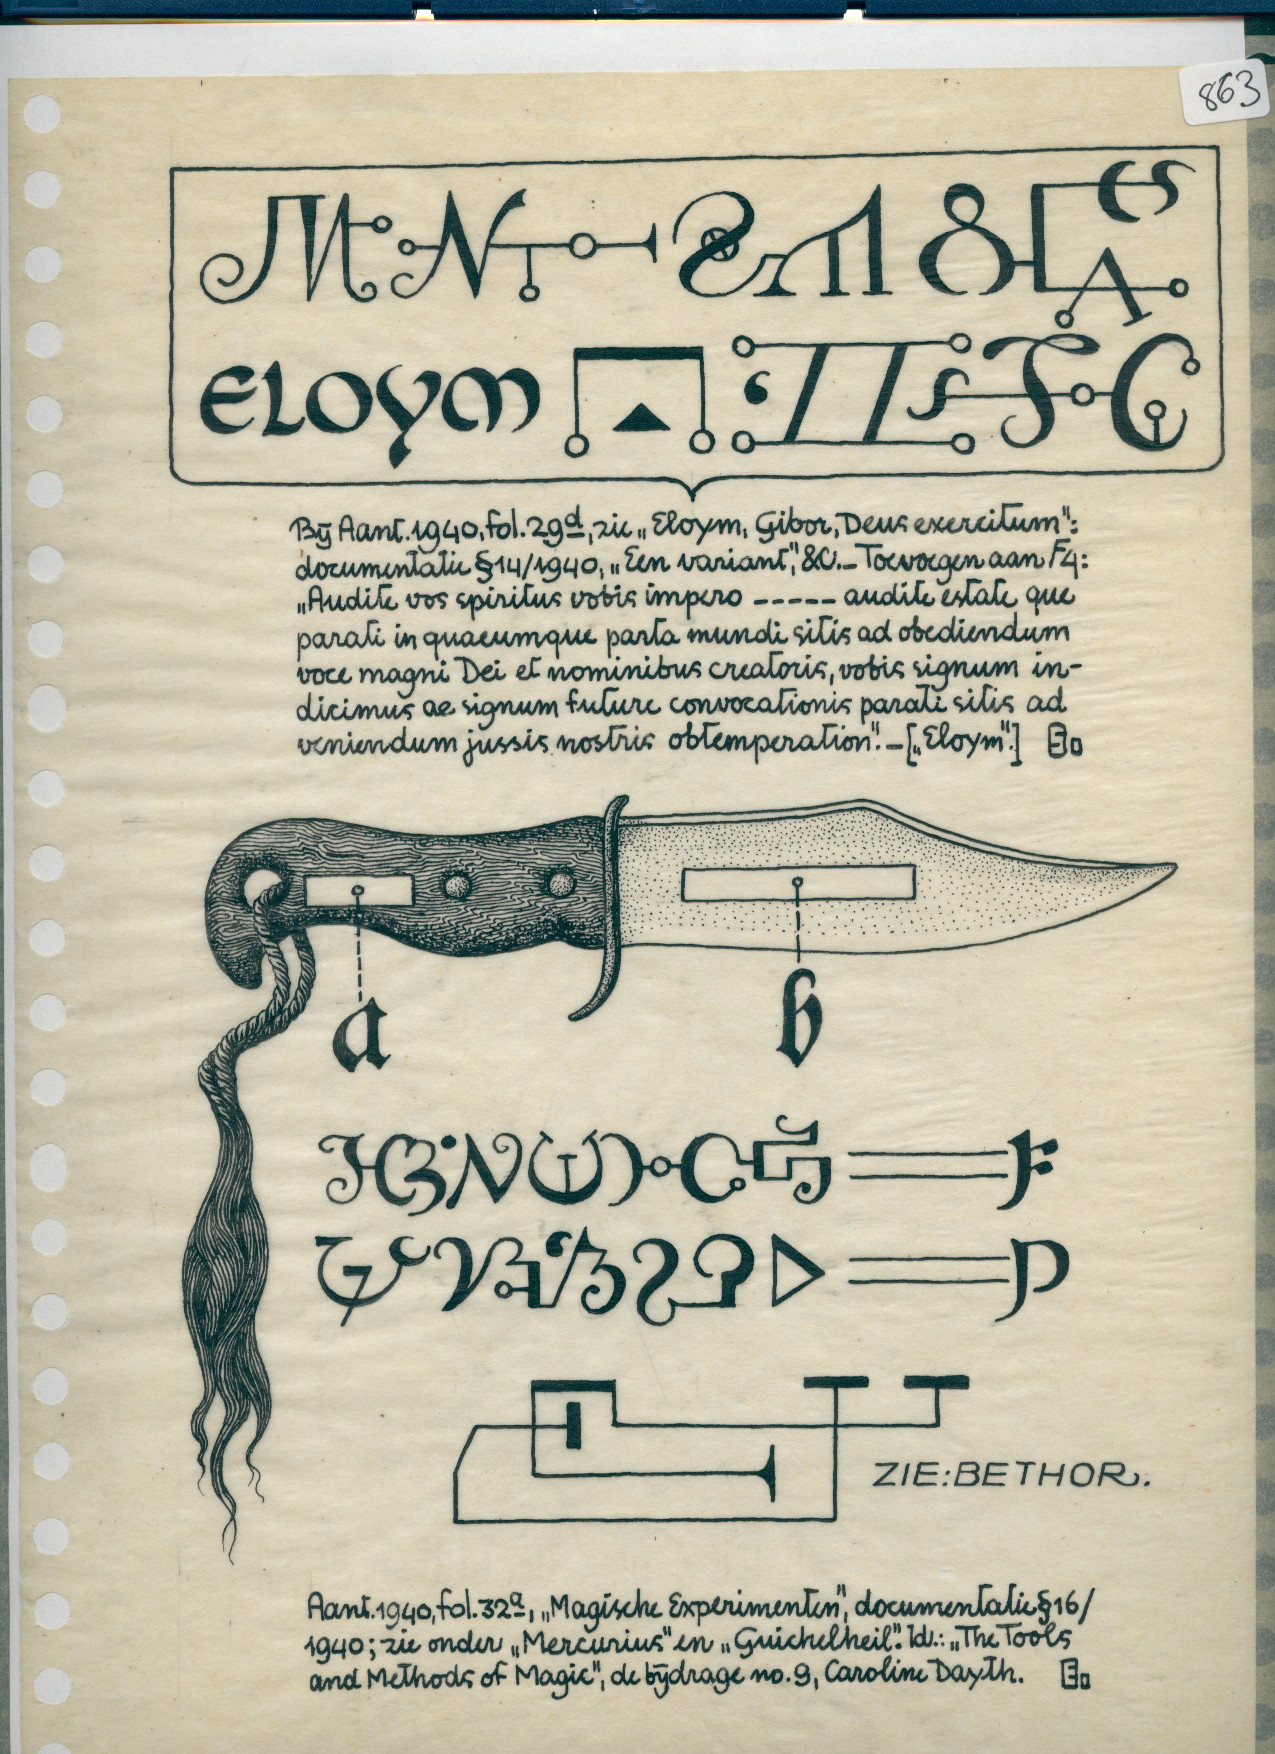 863
ELOYM
By Aant. 1940, fol. 29d, zie „Eloym, Gibor, Deus exercitum":
documentatie §14/1940, „Een variant", &c. – Toevoegen aan F4:
„Audite vos spiritus vobis impero ----- audite estate que
parati in quacumque parta mundi sitis ad obediendum
voce magni Dei et nominibus creatoris, vobis signum in-
dicimus ae signum future convocationis parati sitis ad
veniendum jussis nostris obtemperation". – [„Eloym".]
a
b
ZIE: BETHOR.
Aant. 1940, fol. 32a, „Magische Experimenten", documentatie §16/
1940; zie onder „Mercurius" en „Guichelheil". Id.: „The Tools
and Methods of Magic", de bijdrage no. 9, Caroline Dayth.